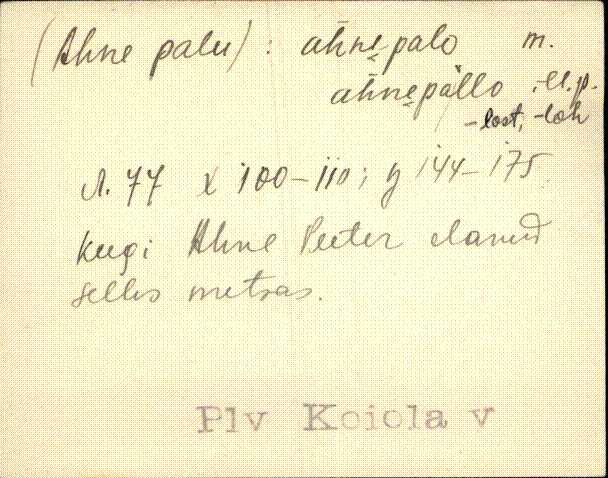 (Ahne palu): ahne̮palo m.
ahne̮pallo, -ll.p.
-lost, -loh
Л. 77 x 100-110; y 144-175
keegi Ahne Peeter elanud
selles metsas.
Plv Koiola v